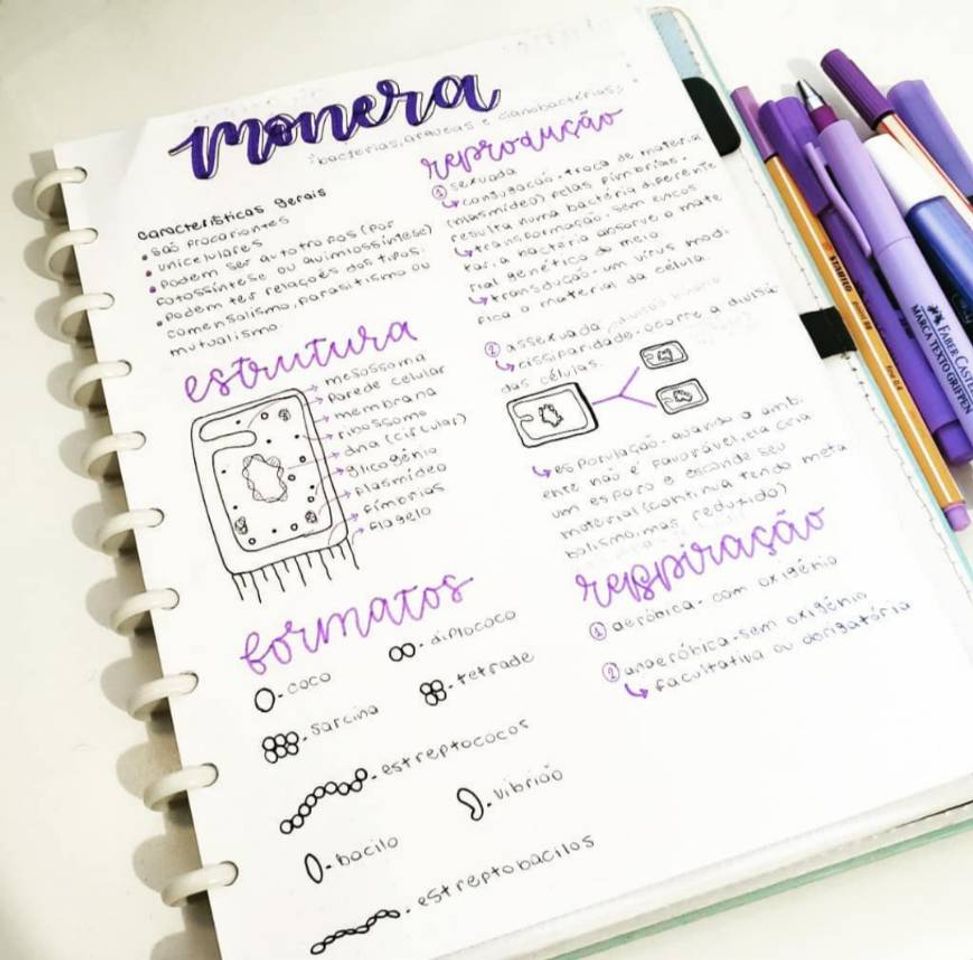 monera
:bacterias, arqueas e cianobactérias;
características gerais
• são procariontes
• unicelulares
• podem ser autotrofos (por
fotossíntese ou quimiossíntese)
• podem ter relações dos tipos:
comensalismo, parasitismo ou
mutualismo
estrutura
mesossoma
parede celular
membrana
ribossomo
dna (circular)
glicogênio
plasmídeo
fímbrias
flagelo
formatos
- coco
- diplococo
- sarcina
- tetrade
- estreptococos
- vibrião
- bacilo
- estreptobacilos
reprodução
① sexuada
↳ conjugação - troca de material
(plasmídeo) pelas fímbrias.
resulta numa bactéria diferente
↳ transformação - sem encos
tar, a bactéria absorve o mate
rial genético do meio
↳ transdução - um vírus modi
fica o material da célula.
② assexuada
↳ cissiparidade - ocorre a divisão
das células.
↳ esporulação - quando o ambi
ente não é favorável, ela cria
um esporo e esconde seu
material (continua tendo meta
bolismo, mas reduzido)
respiração
① aeróbica - com oxigênio
② anaeróbica - sem oxigênio
↳ facultativa ou obrigatória
STABILO
FABER-CASTELL
MARCA TEXTO GRIFPEN